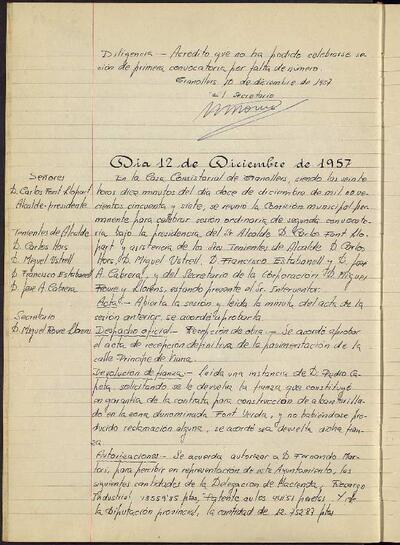 Diligencia — Acredito que no ha podido celebrarse se-
sión de primera convocatoria por falta de número.
Granollers, 10 de diciembre de 1957
El Secretario
Dia 12 de Diciembre de 1957
Señores
D. Carlos Font Llopart
Alcalde-presidente
Tenientes de Alcalde
D. Carlos Hors
D. Miguel Ustrell
D. Francisco Estabanell
D. José A. Cabrera
Secretario
D. Miguel Roure Llorens
En la Casa Consistorial de Granollers, siendo las veinte
horas diez minutos del día doce de diciembre de mil nove-
cientos cincuenta y siete, se reunió la Comisión municipal per-
manente para celebrar sesión ordinaria de segunda convocato-
ria bajo la presidencia del Sr. Alcalde D. Carlos Font Llo-
part y asistencia de los Ttes. Tenientes de Alcalde D. Carlos
Hors, D. Miguel Ustrell, D. Francisco Estabanell y D. José
A. Cabrera, y del Secretario de la Corporación D. Miguel
Roure y Llorens, estando presente el Sr. Interventor.
Acta - Abierta la sesión y leída la minuta del acta de la
sesión anterior, se acordó aprobarla.
Despacho oficial - Recepción de obra - Se acordó aprobar
el acta de recepción definitiva de la pavimentación de la
calle Príncipe de Viana.
Devolución de fianza - Leída una instancia de D. Pedro
solicitando se le devuelva la fianza que constituyó
en garantía de la contrata para construcción de alcantarilla-
do en la zona denominada Font Verda, y no habiéndose pro-
ducido reclamación alguna, se acordó sea devuelta dicha fian-
za
Autorizaciones - Se acuerda autorizar a D. Fernando
para percibir en representación de este Ayuntamiento, las
siguientes cantidades de la Delegación de Hacienda, Recargo
Industrial ptas, Patente autos pesetas. Y de
la Diputación provincial, la cantidad de 12.752'87 ptas